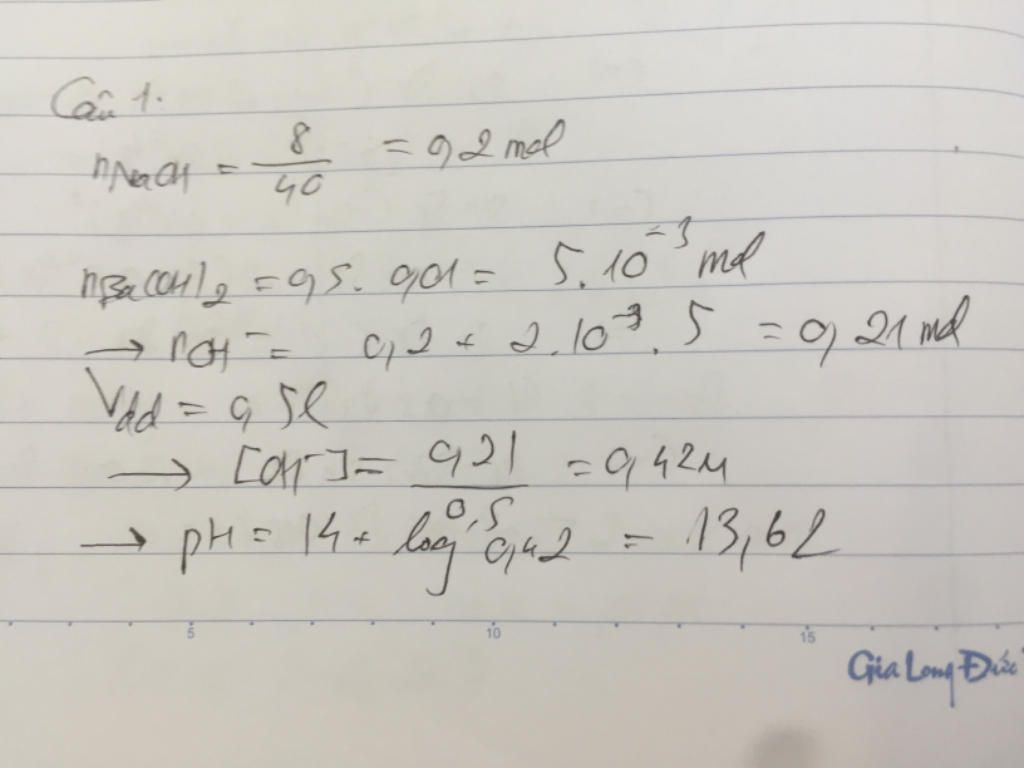 Câu 1.
nNaOH = 8/40 = 0,2 mol
nBa(OH)2 = 0,5. 0,01 = 5.10^-3 mol
→ nOH^- = 0,2 + 2.10^-3.5 = 0,21 mol
Vdd = 0,5l
→ [OH^-] = 0,21/0,5 = 0,42M
→ pH = 14 + log 0,42 = 13,62
5 10 15
Gia Long Đức